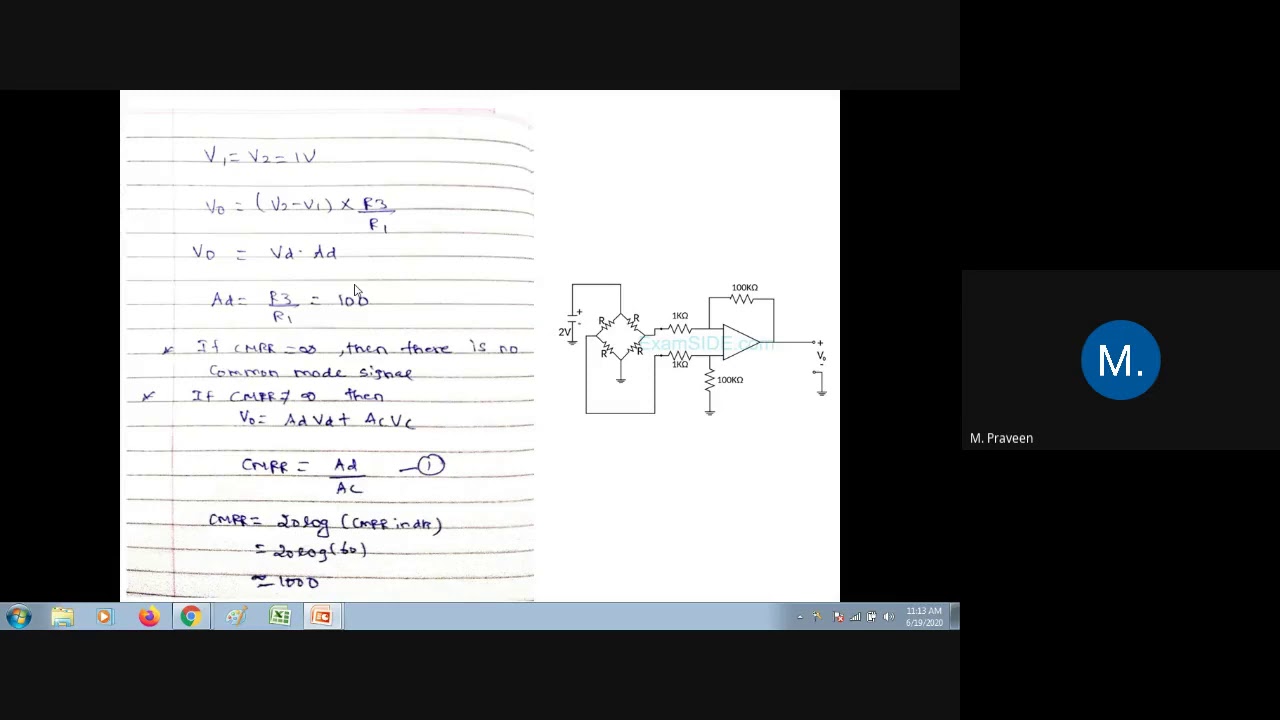 V1 = V2 = 1V
V0 = (V2 - V1) × R3/R1
V0 = Vd · Ad
Ad = R3/R1 = 100
* If CMRR = ∞, then there is no
Common mode signal
* If CMRR ≠ ∞ then
V0 = AdVd + AcVc
CMRR = Ad/AC — ①
CMRR = 20log (CMRR in dB)
= 20log(60)
≈ 1000
100KΩ
R
R
1KΩ
+
-
2V
ExamSIDE.com
R
R
1KΩ
100KΩ
+
Vo
-
M.
M. Praveen
11:13 AM
6/19/2020